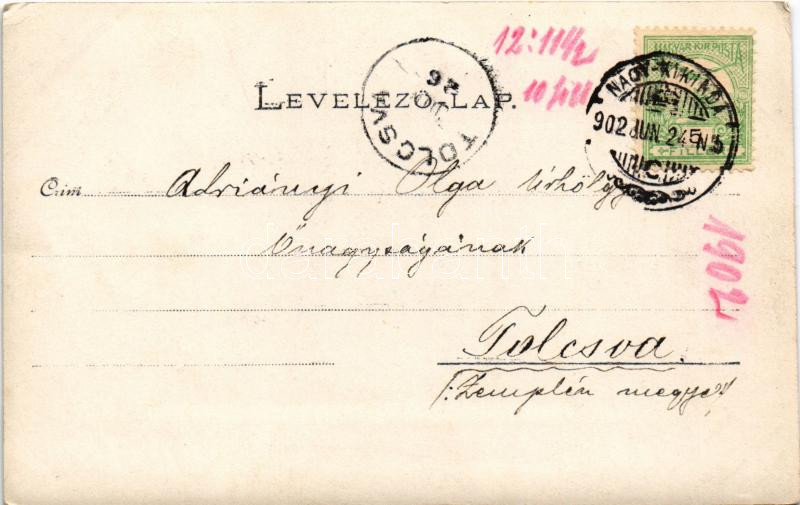 12:11 1/2
10 fill
MAGYAR KIR POSTA
NAGY-KIKINDA
902 JUN 24 N 5
TOLCSVA
92
LEVELEZŐ-LAP.
Czim Adriányi Olga Úrhölgy
Őnagyságának
1902
Tolcsva.
/:Zemplén megye:/